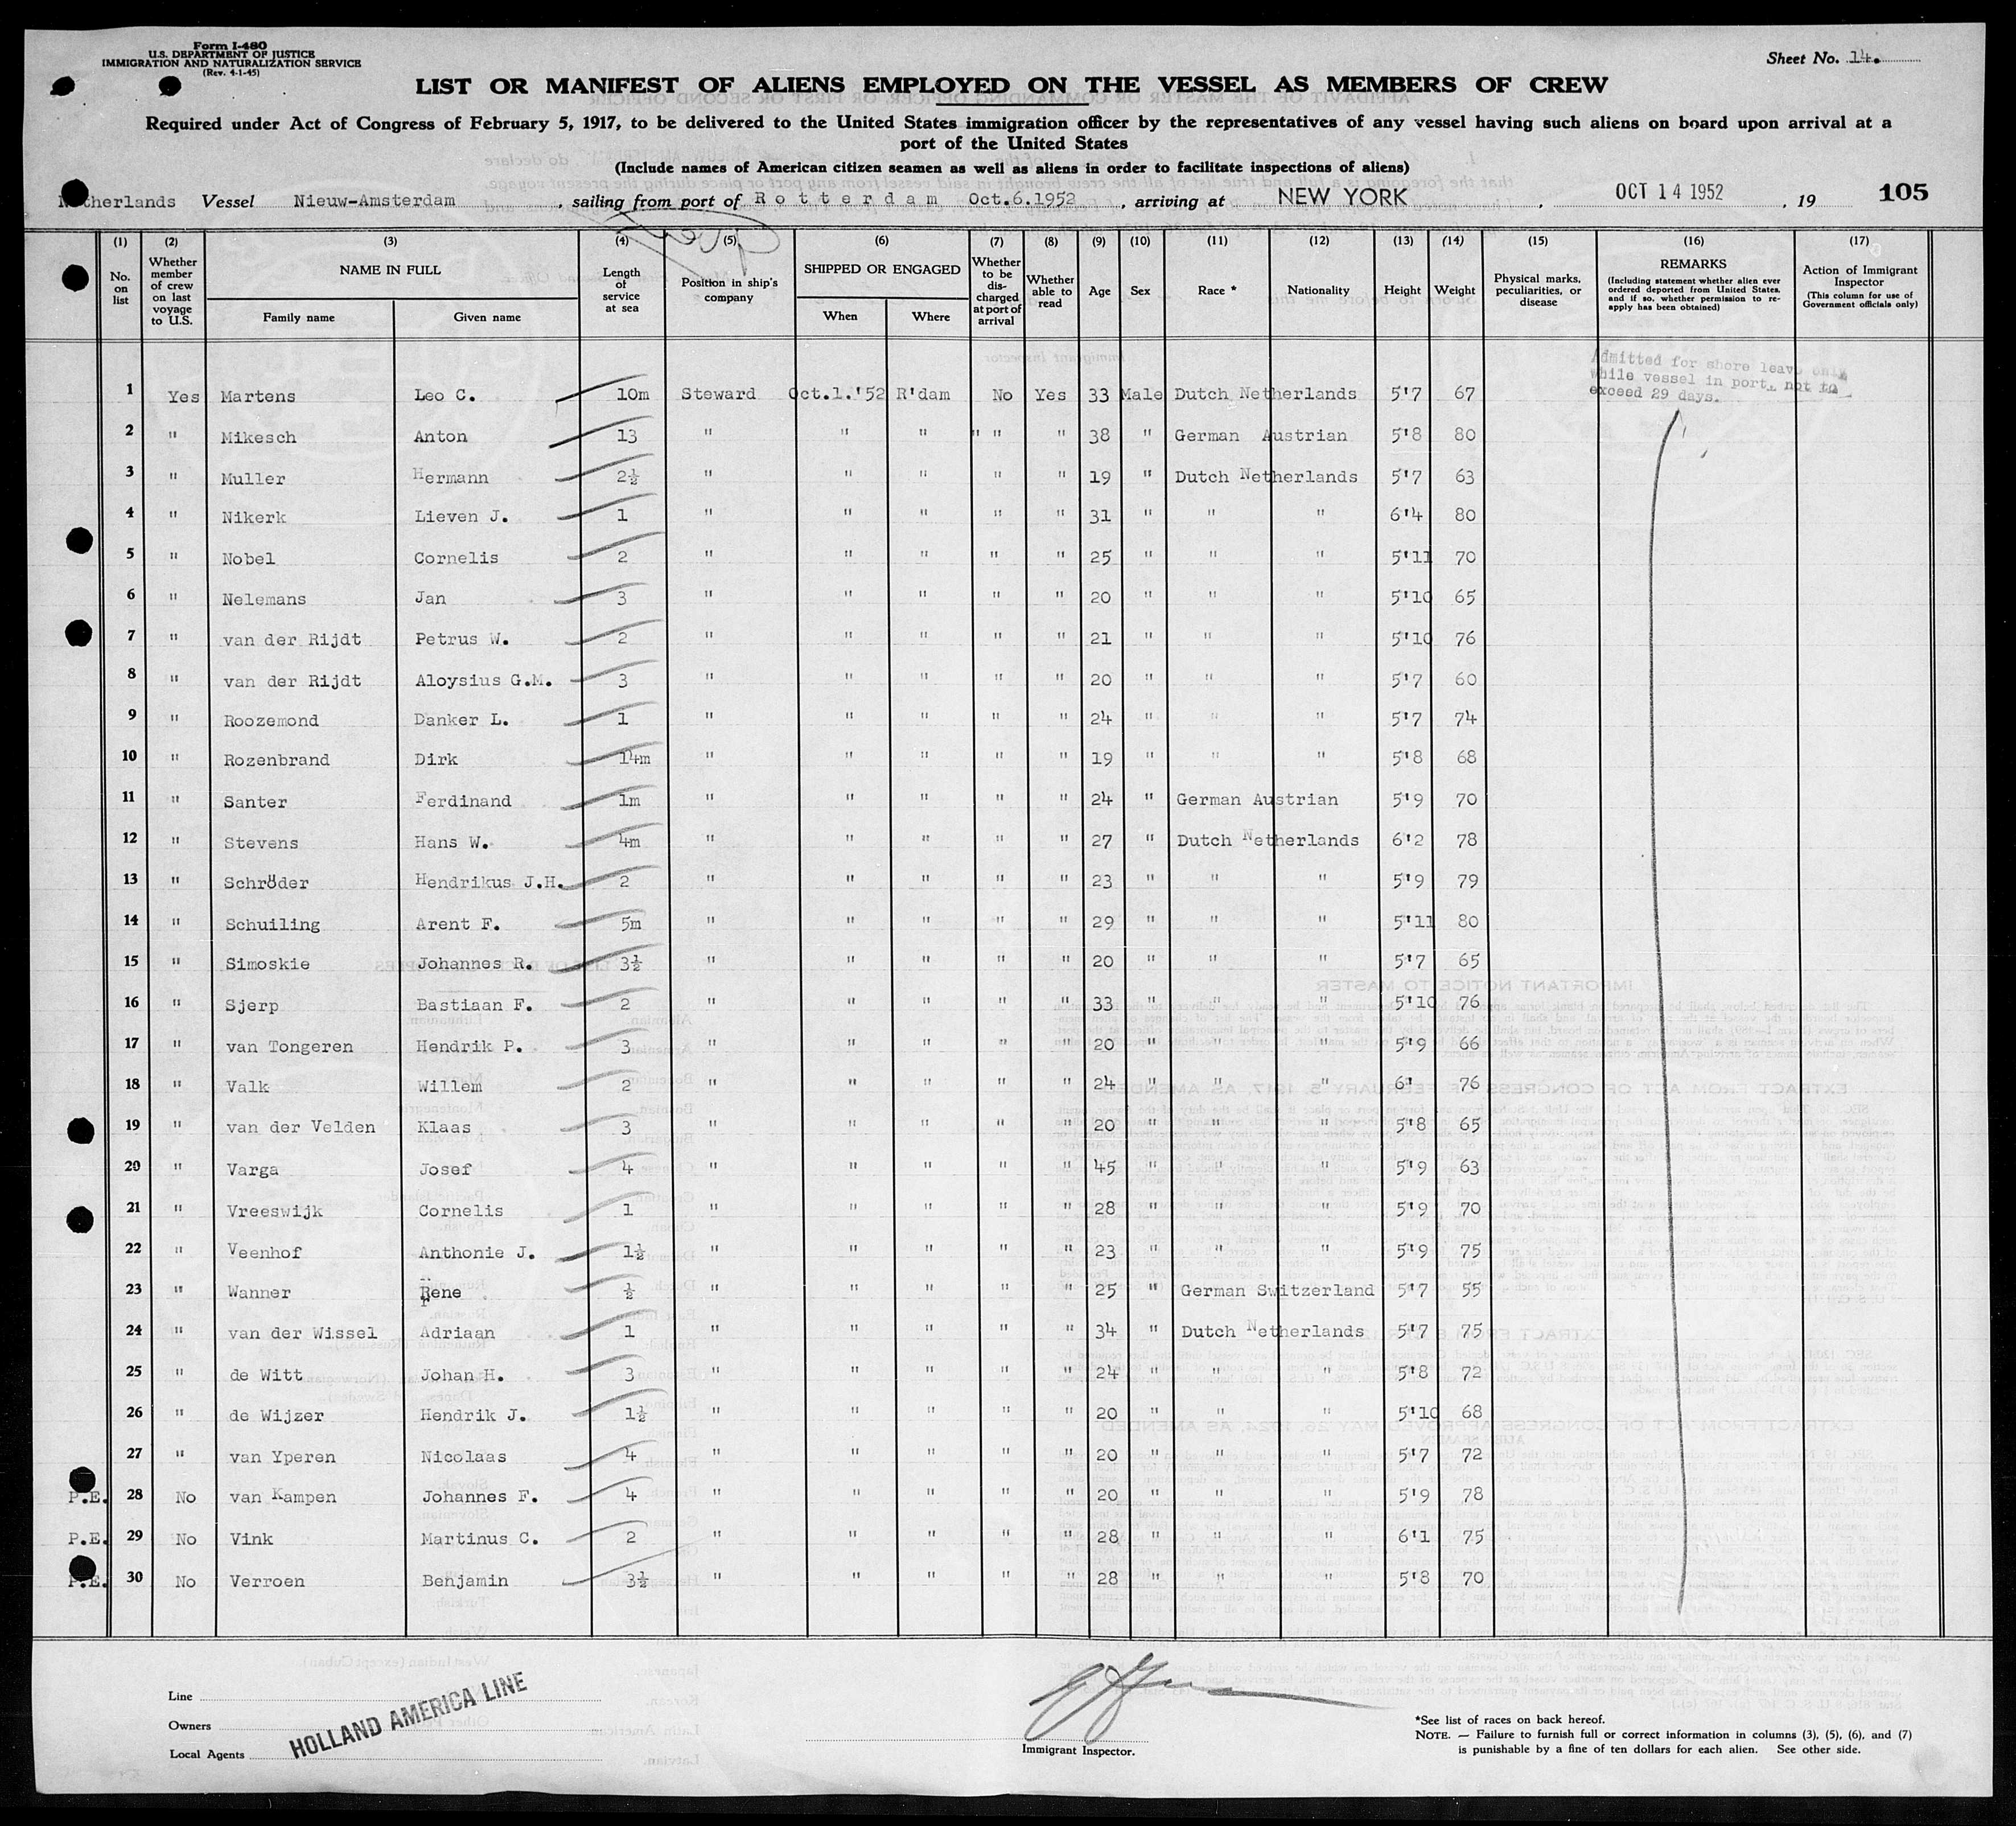 Form I-480
U.S. DEPARTMENT OF JUSTICE
IMMIGRATION AND NATURALIZATION SERVICE
(Rev. 4-1-45)
Sheet No. 14.
LIST OR MANIFEST OF ALIENS EMPLOYED ON THE VESSEL AS MEMBERS OF CREW
Required under Act of Congress of February 5, 1917, to be delivered to the United States immigration officer by the representatives of any vessel having such aliens on board upon arrival at a
port of the United States
(Include names of American citizen seamen as well as aliens in order to facilitate inspections of aliens)
Netherlands Vessel Nieuw-Amsterdam, sailing from port of Rotterdam Oct.6.1952, arriving at NEW YORK, OCT 14 1952, 19 105
(1) (2) (3) (4) (5) (6) (7) (8) (9) (10) (11) (12) (13) (14) (15) (16) (17)
No. on list
Whether member of crew on last voyage to U.S.
NAME IN FULL
Family name Given name
Length of service at sea
Position in ship's company
SHIPPED OR ENGAGED
When Where
Whether to be discharged at port of arrival
Whether able to read
Age
Sex
Race *
Nationality
Height
Weight
Physical marks, peculiarities, or disease
REMARKS
(Including statement whether alien ever ordered deported from United States, and if so, whether permission to reapply has been obtained)
Action of Immigrant Inspector
(This column for use of Government officials only)
Admitted for shore leave only
while vessel in port, not to
exceed 29 days.
1 Yes Martens Leo C. 10m Steward Oct.1.'52 R'dam No Yes 33 Male Dutch Netherlands 5'7 67
2 " Mikesch Anton 13 " " " " " " 38 " German Austrian 5'8 80
3 " Muller Hermann 2½ " " " " " 19 " Dutch Netherlands 5'7 63
4 " Nikerk Lieven J. 1 " " " " " 31 " " " 6'4 80
5 " Nobel Cornelis 2 " " " " " 25 " " " 5'11 70
6 " Nelemans Jan 3 " " " " " 20 " " " 5'10 65
7 " van der Rijdt Petrus W. 2 " " " " " 21 " " " 5'10 76
8 " van der Rijdt Aloysius G.M. 3 " " " " " 20 " " " 5'7 60
9 " Roozemond Danker L. 1 " " " " " 24 " " " 5'7 74
10 " Rozenbrand Dirk 14m " " " " " 19 " " " 5'8 68
11 " Santer Ferdinand 1m " " " " " 24 " German Austrian 5'9 70
12 " Stevens Hans W. 4m " " " " " 27 " Dutch Netherlands 6'2 78
13 " Schröder Hendrikus J.H. 2 " " " " " 23 " " " 5'9 79
14 " Schuiling Arent F. 5m " " " " " 29 " " " 5'11 80
15 " Simoskie Johannes R. 3½ " " " " " 20 " " " 5'7 65
16 " Sjerp Bastiaan F. 2 " " " " " 33 " " " 5'10 76
17 " van Tongeren Hendrik P. 3 " " " " " 20 " " " 5'9 66
18 " Valk Willem 2 " " " " " 24 " " " 6' 76
19 " van der Velden Klaas 3 " " " " " 20 " " " 5'8 65
20 " Varga Josef 4 " " " " " 45 " " " 5'9 63
21 " Vreeswijk Cornelis 1 " " " " " 28 " " " 5'9 70
22 " Veenhof Anthonie J. 1½ " " " " " 23 " " " 5'9 75
23 " Wanner Rene ½ " " " " " 25 " German Switzerland 5'7 55
24 " van der Wissel Adriaan 1 " " " " " 34 " Dutch Netherlands 5'7 75
25 " de Witt Johan H. 3 " " " " " 24 " " " 5'8 72
26 " de Wijzer Hendrik J. 1½ " " " " " 20 " " " 5'10 68
27 " van Yperen Nicolaas 4 " " " " " 20 " " " 5'7 72
P.E. 28 No van Kampen Johannes F. 4 " " " " " 20 " " " 5'9 78
P.E. 29 No Vink Martinus C. 2 " " " " " 28 " " " 6'1 75
P.E. 30 No Verroen Benjamin 3½ " " " " " 28 " " " 5'8 70
Line
Owners
Local Agents
HOLLAND AMERICA LINE
Immigrant Inspector.
*See list of races on back hereof.
NOTE. — Failure to furnish full or correct information in columns (3), (5), (6), and (7)
is punishable by a fine of ten dollars for each alien. See other side.